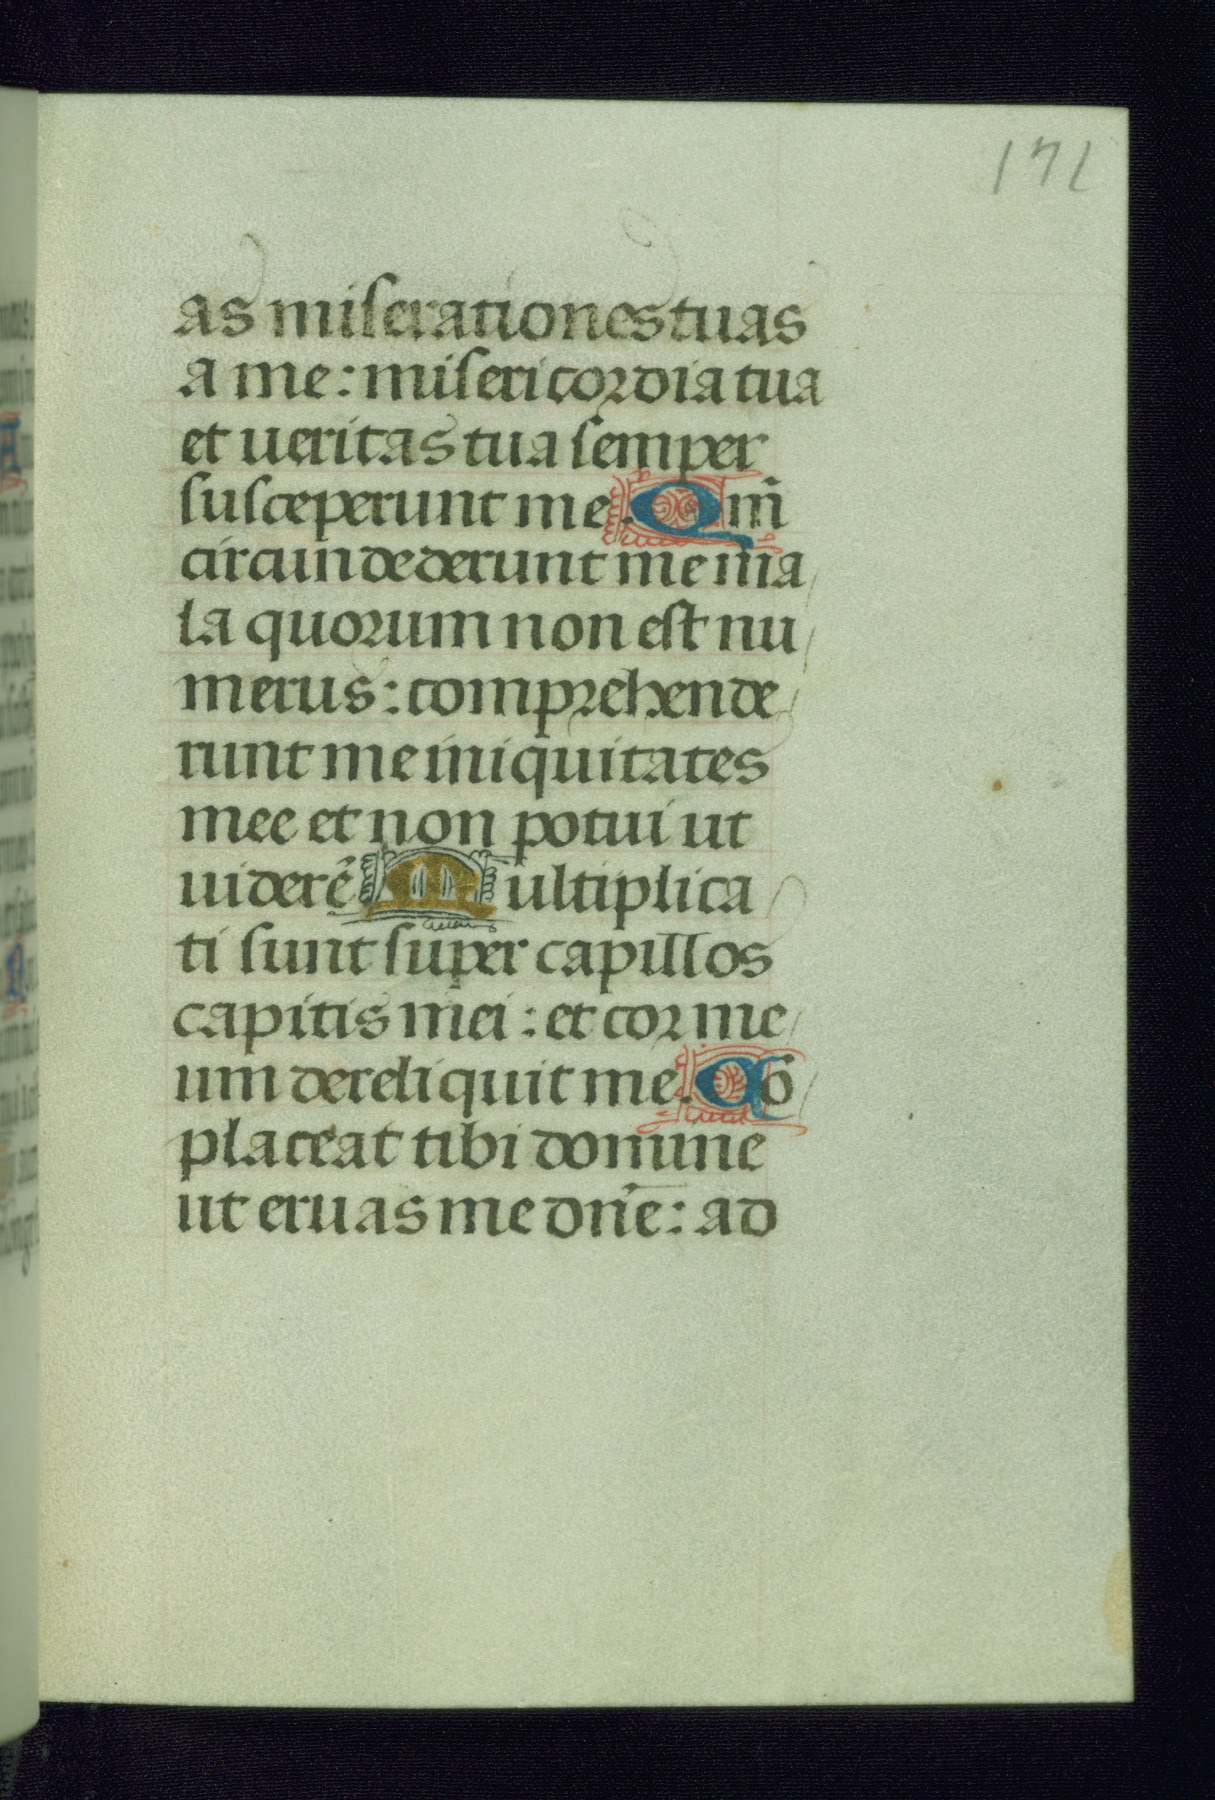 171
as miserationes tuas
a me: misericordia tua
et ueritas tua semper
susceperunt me. Qm̃
circundederunt me ma
la quorum non est nu
merus: comprehende
runt me iniquitates
mee et non potui ut
uiderẽ Multiplica
ti sunt super capillos
capitis mei: et cor me
um dereliquit me. Cõ
placeat tibi domine
ut eruas me dñe: ad